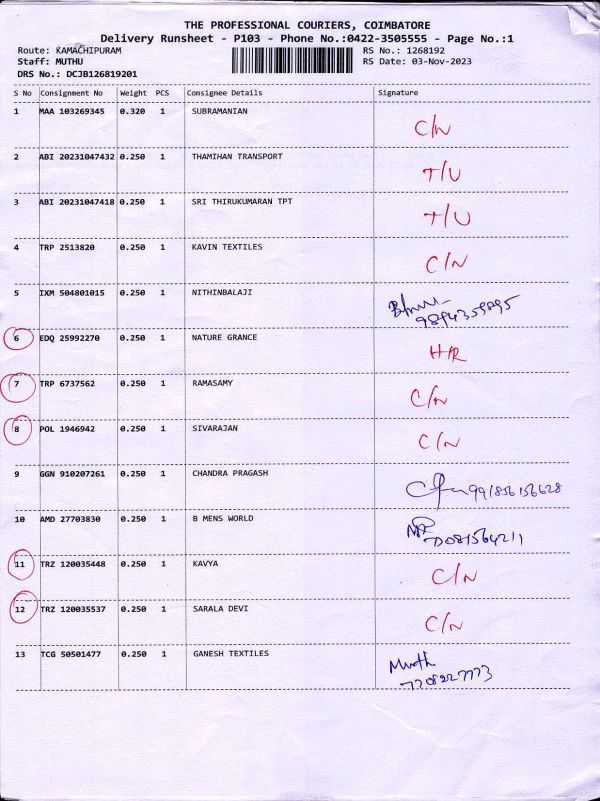 THE PROFESSIONAL COURIERS, COIMBATORE
Delivery Runsheet - P103 - Phone No.:0422-3505555 - Page No.:1
Route: KAMACHIPURAM RS No.: 1268192
Staff: MUTHU RS Date: 03-Nov-2023
DRS No.: DCJB126819201
S No Consignment No Weight PCS Consignee Details Signature
1 MAA 103269345 0.320 1 SUBRAMANIAN C/N
2 ABI 20231047432 0.250 1 THAMIHAN TRANSPORT T/U
3 ABI 20231047418 0.250 1 SRI THIRUKUMARAN TPT T/U
4 TRP 2513820 0.250 1 KAVIN TEXTILES C/N
5 IXM 504801015 0.250 1 NITHINBALAJI
6 EDQ 25992270 0.250 1 NATURE GRANCE
7 TRP 6737562 0.250 1 RAMASAMY C/N
8 POL 1946942 0.250 1 SIVARAJAN C/N
9 GGN 910207261 0.250 1 CHANDRA PRAGASH
10 AMD 27703830 0.250 1 B MENS WORLD
11 TRZ 120035448 0.250 1 KAVYA C/N
12 TRZ 120035537 0.250 1 SARALA DEVI C/N
13 TCG 50501477 0.250 1 GANESH TEXTILES